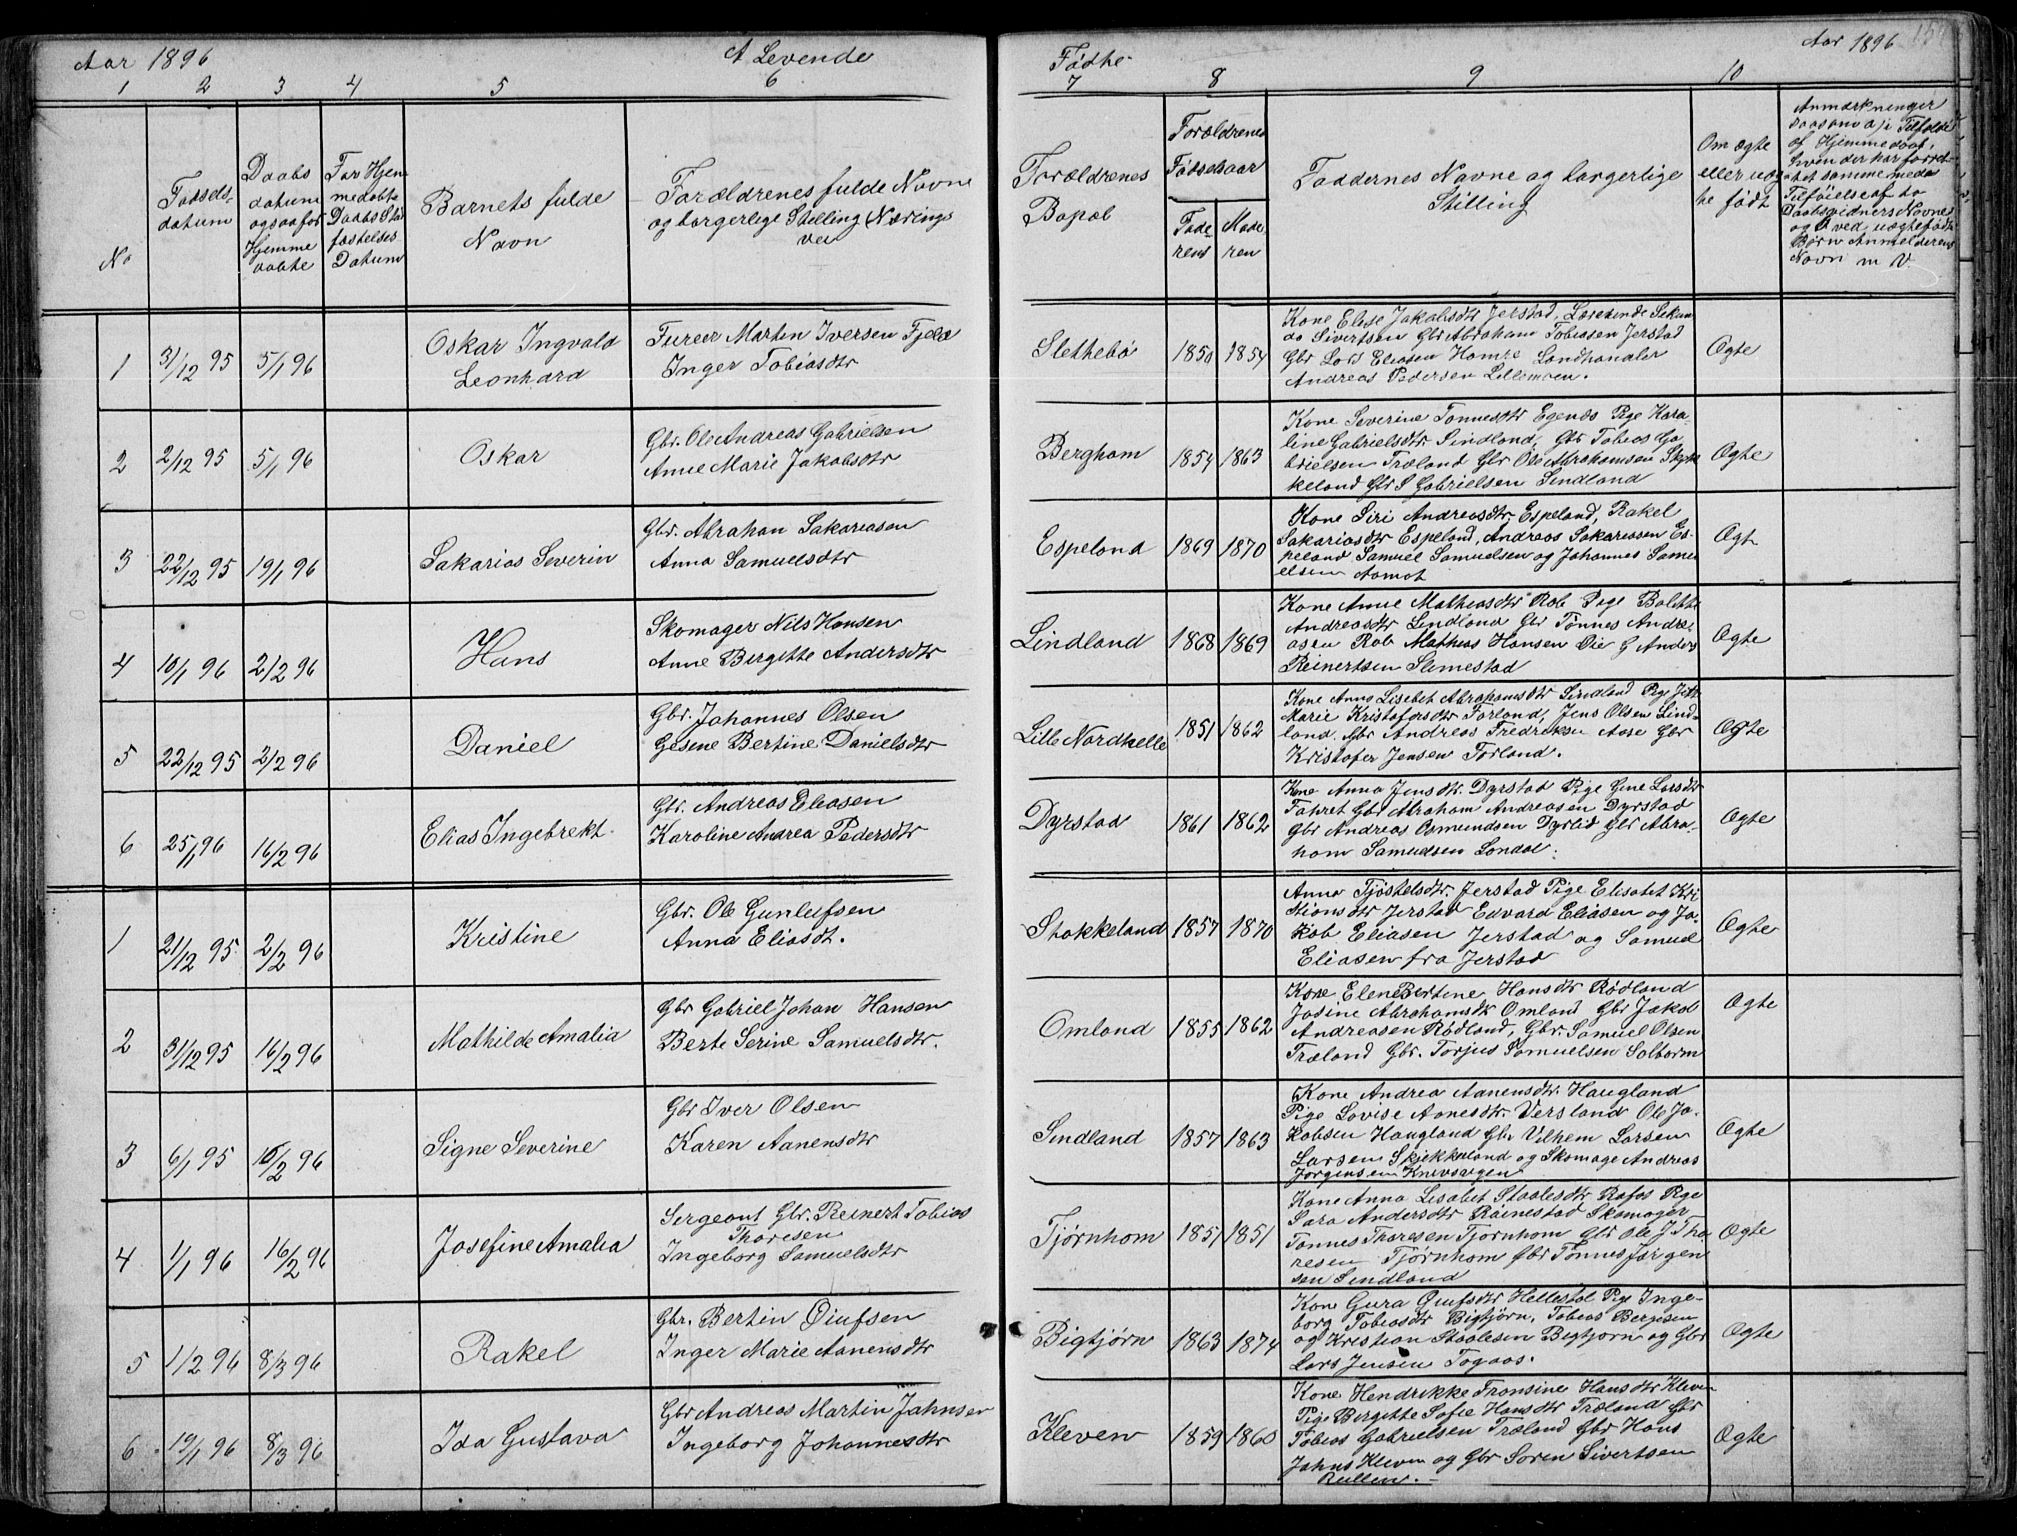 Aar 1896
A Levende
Fødte
Aar 1896
1 2 3 4 5 6 7 8 9 10
No
Fødsels-
datum
Daabs
datum
ogsaa for
Hjemme
døbte
For Hjem
medøbte
Daabs Stad
fæstelses
Datum
Barnets fulde
Navn
Forældrenes fulde Navne
og borgerlige Stilling Nærings
vei
Forældrenes
Bopæl
Forældrenes
Fødselsaar
Fade-
rens
Mode
ren
Faddernes Navne og borgerlige
Stilling
Om ægte
eller uæg
te født
Anmærkninger
saasom a, i Tilfælde
af Hjemmedaab,
hvem der har forret-
tet samme med
Tilføielse af to
Daabsvidners Navne
og b ved uægtefødte
Børn Anmelderens
Navn m V.
1 31/12 95 5/1 96
Oskar Ingvald
Leonhard
Fureer Martin Iversen Fjeld
Inger Tobiasdtr
Slethebø 1850 1854
Kone Elise Jakobsdtr Jerstad,
Sivertsen Gbr Abraham Tobiasen Jerstad
Gbr Lars Eliasen Hamre Landhandler
Andreas Pedersen Lillemoen.
Ogte
2 2/12 95 5/1 96
Oskar
Gbr. Ole Andreas Gabrielsen
Anne Marie Jakobsdtr
Bergham 1854 1863
Kone Severine Tonnesdtr Egenes Pige Karo-
line Gabrielsdtr Sindland, Gbr Tobias Ga
brielsen Træland Gbr Ole Abrahamsen Stok
keland Gbr S Gabrielsen Sindland
Ogte
3 22/12 95 19/1 96
Sakarias Severin
Gbr. Abraham Sakariasen
Anna Samuelsdtr
Espeland 1869 1870
Kone Siri Andreasdtr. Espeland, Rakel
Sakariasdtr Espeland, Andreas Sakariasen Es-
peland Samuel Samuelsen og Johannes Samu
elsen Aamot
Ogt
4 10/1 96 2/2 96
Hans
Skomager Nils Hansen
Anne Bergitte Andersdtr
Lindland 1868 1869
Kone Anne Mathiasdtr Rob Pige Bolette
Andreasdtr Lindland Gbr Tønnes Andre-
asen Rob Mathias Hansen Øie G Anders
Reinertsen Slimestad
Ogte
5 22/12 95 2/2 96
Daniel
Gbr. Johannes Olsen
Gesine Bertine Danielsdtr
Lille Nordhelle 1851 1862
Kone Anna Lisebet Abrahamsdtr Sindland Pige
Marie Kristofersdtr Førland, Jens Olsen Lind-
land. Gbr Andreas Fredriksen Aase Gbr
Kristofer Jensen Førland.
Ogte
6 25/1 96 16/2 96
Elias Ingebrekt.
Gbr. Andreas Eliasen
Karoline Andrea Pedersdtr
Dyrstad 1861 1862
Kone Anna Jensdtr. Dyrstad Pige Gine Larsdtr
Fahret Gbr Abraham Andreasen Dyrstad
Gbr Andreas Osmundsen Dyrlid Gbr Abra-
ham Samuelsen Londal.
Ogte
1 21/12 95 2/2 96
Kristine
Gbr. Ole Gunlufsen
Anna Eliasdt.
Stokkeland 1857 1870
Anna Tjøstelsdtr. Jerstad Pige Elisabet Kri
stiansdtr Jerstad Edvard Eliasen og Ja-
kob Eliasen Jerstad og Samuel
Eliasen fra Jerstad
Ogte
2 31/12 95 16/2 96
Mathilde Amalia
Gbr Gabriel Johan Hansen
Berte Serine Samuelsdtr.
Omland 1855 1862
Kone Elene Bertine Hansdtr Rødland
Josine Abrahamsdtr Omland Gbr Jakob
Andreasen Rødland, Gbr. Samuel Olsen
Træland Gbr. Torjus Samuelsen Solborm
Ogte
3 6/1 95 16/2 96
Signe Severine
Gbr Iver Olsen
Karen Aanensdtr
Sindland 1857 1863
Kone Andrea Aanensdtr. Haugland
Pige Lovise Aanesdtr. Versland Ole Ja-
kobsen Haugland Gbr Vilhem Larsen
Larsen Skjekkeland og Skomage Andreas
Jorgensen Knivsvegen
Ogte
4 1/1 96 16/2 96
Josefine Amalia
Sergeant Gbr. Reinert Tobias
Thoresen
Ingeborg Samuelsdtr
Tjørnhom 1851 1851
Kone Anna Lisabet Staalesdtr Rafos Pige
Sara Andersdtr Røinestad Skomager
Tonnes Thoresen Tjørnhom Gbr Ole J Tho
resen Tjørnhom Gbr Tønnes Jørgen
sen Sindland
Ogte
5 1/2 96 8/3 96
Rakel
Gbr. Bertin Øiufsen
Inger Marie Aanensdtr
Bigtjørn 1863 1874
Kone Gura Øiufsdtr Hellestøl Pige Inge-
borg Tobiasdtr Bigtjørn, Tobias Bergesen
og Kristian Staalesen Bigtjorn og Gbr
Lars Jensen Togaas.
Ogte
6 19/1 96 8/3 96
Ida Gustava
Gbr Andreas Martin Jahnsen
Ingeborg Johannesdtr
Kleven 1859 1860
Kone Hendrikke Fronsine Hansdtr Kleven
Pige Bergitte Sofie Hansdtr Træland Gbr
Tobias Gabrielsen Træland Gbr Hans
Jahns Kleven og Gbr Søren Sivertsen
Rullen.
Ogte